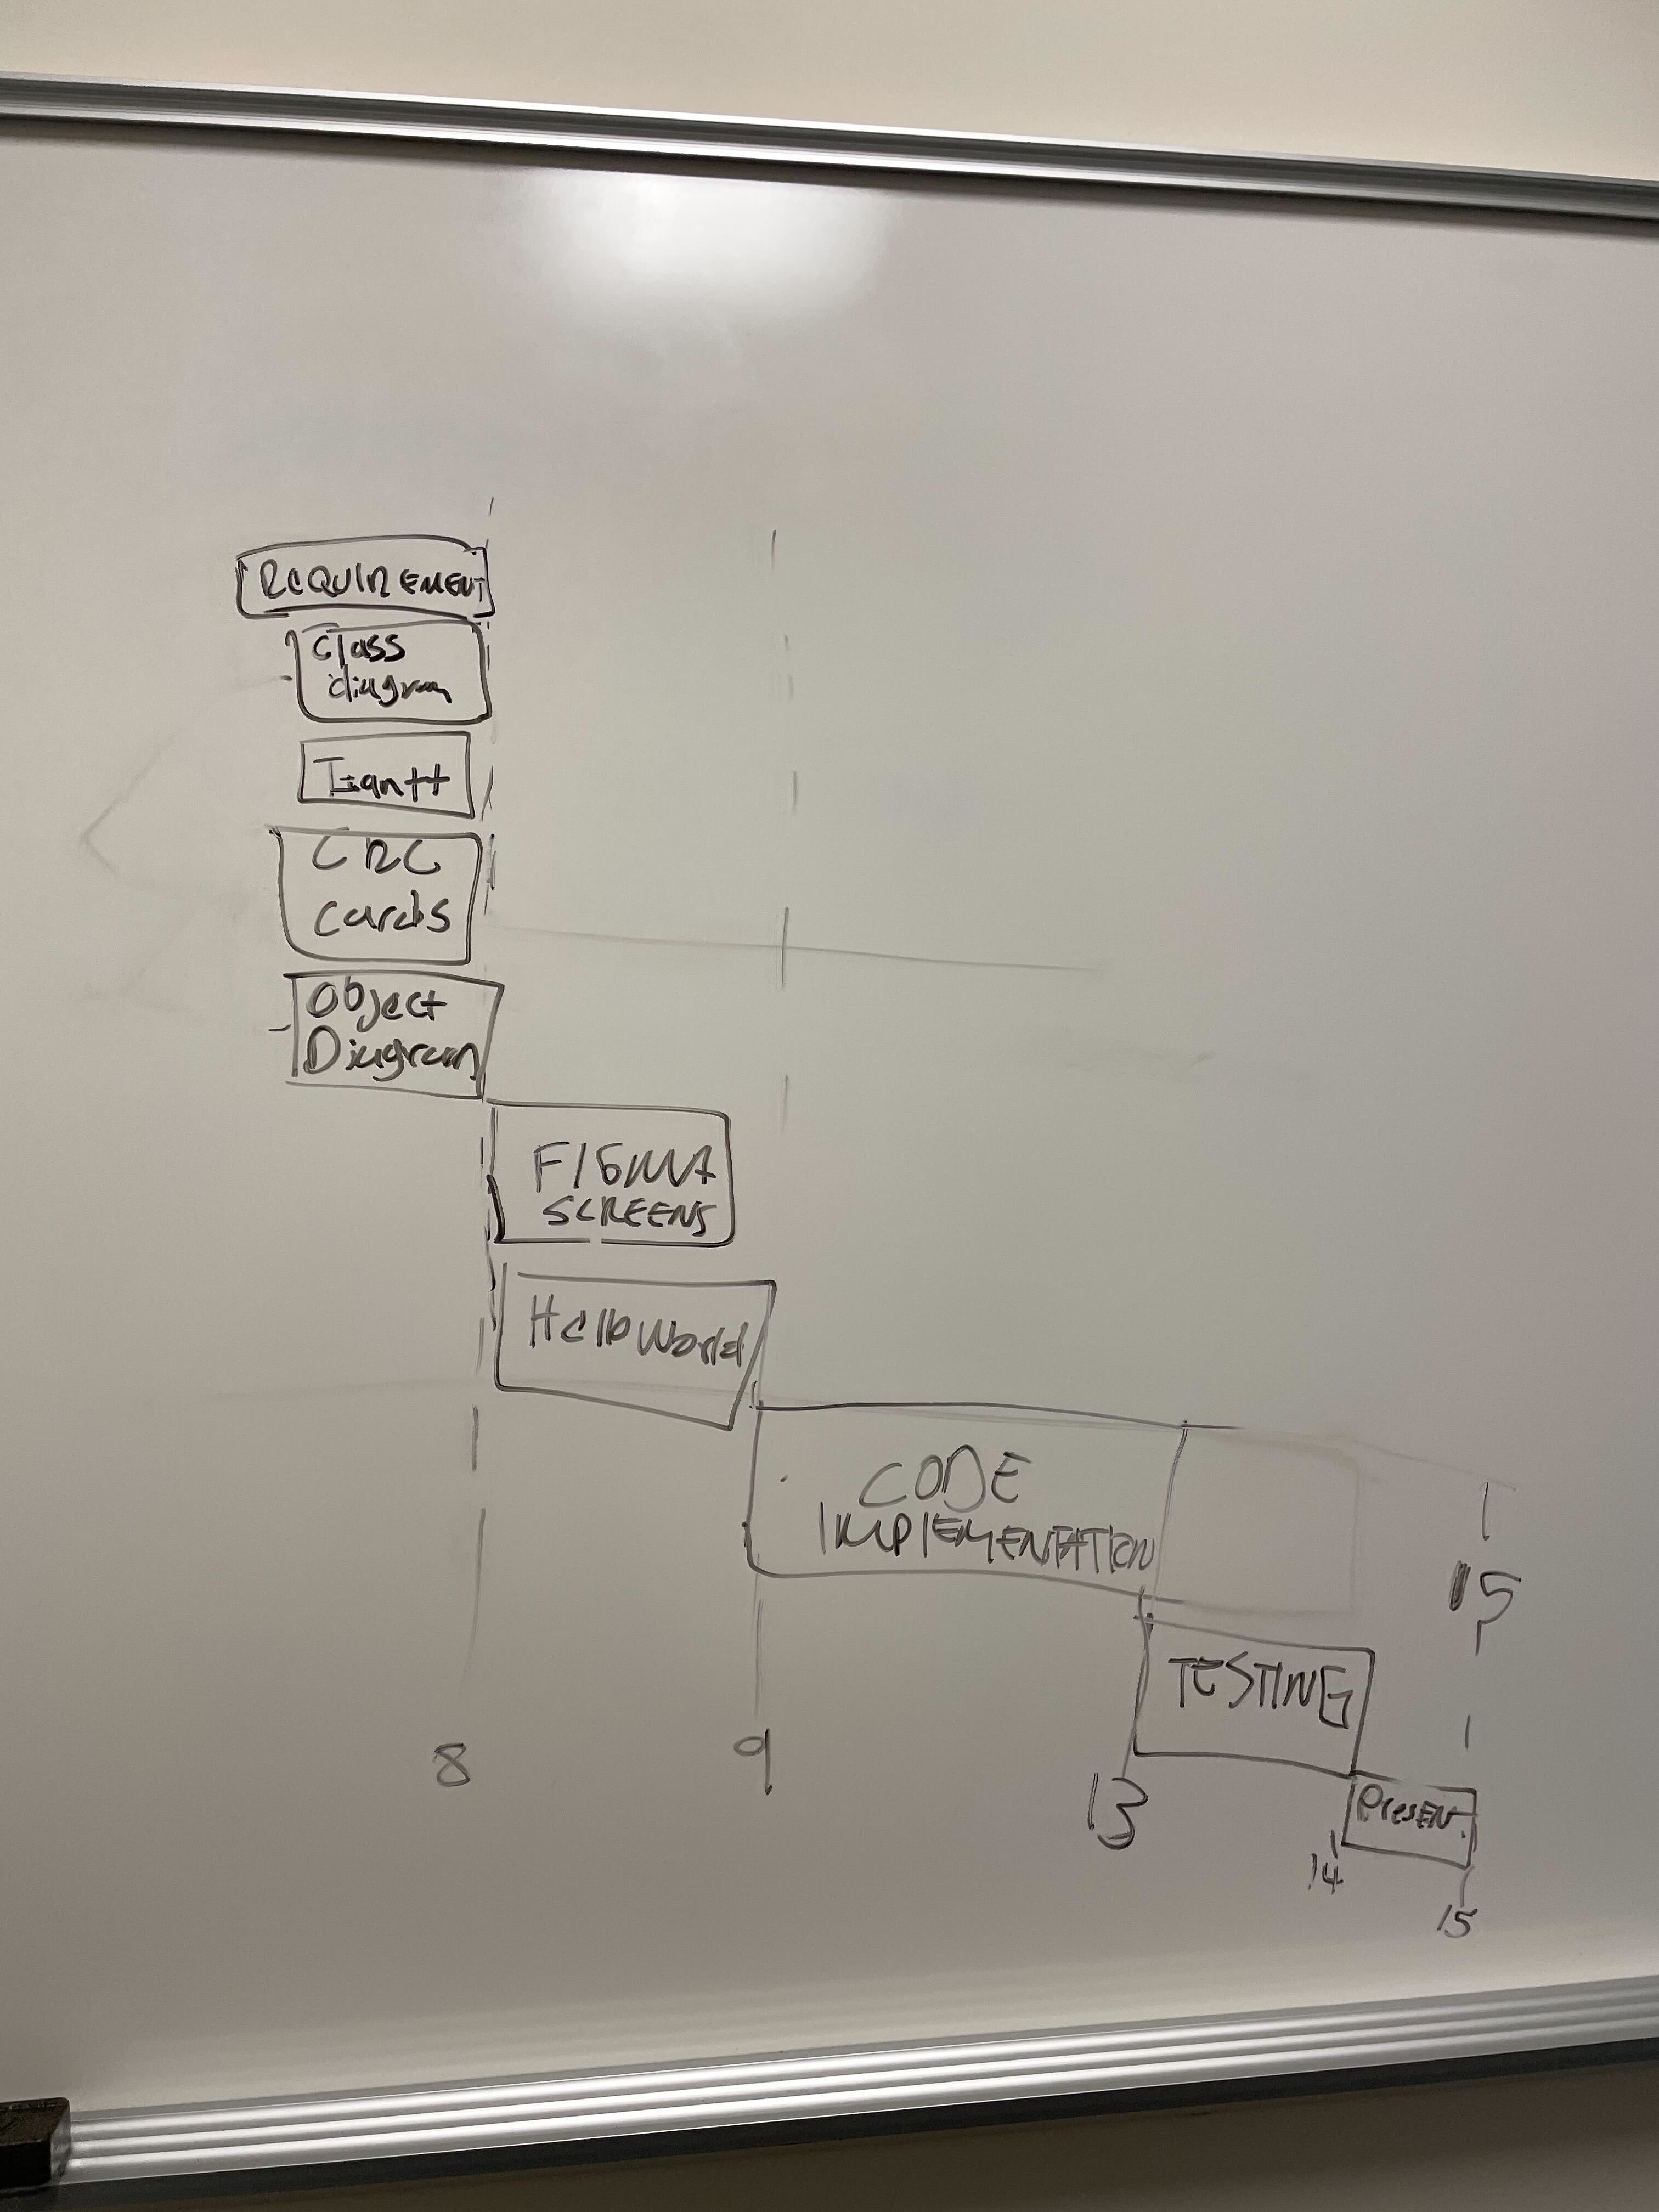 REQUIREMENT
Class
diagram
Gantt
CRC
cards
Object
Diagram
FIGMA
SCREENS
Hello World
CODE
IMPLEMENTATION
15
TESTING
8
9
13
PresEN.
14
15